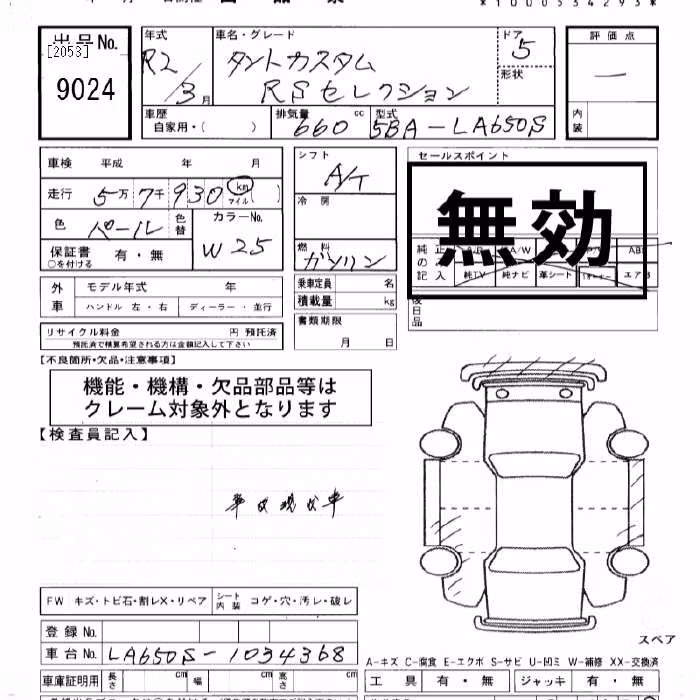 *1000534293*
出品No.
[2053]
9024
年式
R2/3月
車名・グレード
タントカスタム
RSセレクション
ドア
5
形状
評価点
内装
車歴
自家用・( )
排気量
660 cc
型式
5BA-LA650S
車検 平成 年 月
走行 5万7千930 km マイル ( )
色 パール 色替
カラーNo.
W25
保証書 有・無
○を付ける
シフト
A/T
冷房
燃料
ガソリン
乗車定員 名
積載量 kg
書類期限
月 日
セールスポイント
無効
純正のみ記入
A/W
純TV 純ナビ 革シート
後日品
外車
モデル年式 年
ハンドル 左・右 ディーラー・並行
リサイクル料金 円 預託済
預託済で積算希望される方は金額記入して下さい
【不良箇所・欠品・注意事項】
機能・機構・欠品部品等は
クレーム対象外となります
【検査員記入】
FW キズ・トビ石・割レX・リペア
シート内装 コゲ・穴・汚レ・破レ
登録No.
車台No. LA650S-1034368
車庫証明用 長さ cm 幅 cm 高さ cm
スペア
A-キズ C-腐食 E-エクボ S-サビ U-凹ミ W-補修 XX-交換済
工具 有・無 ジャッキ 有・無